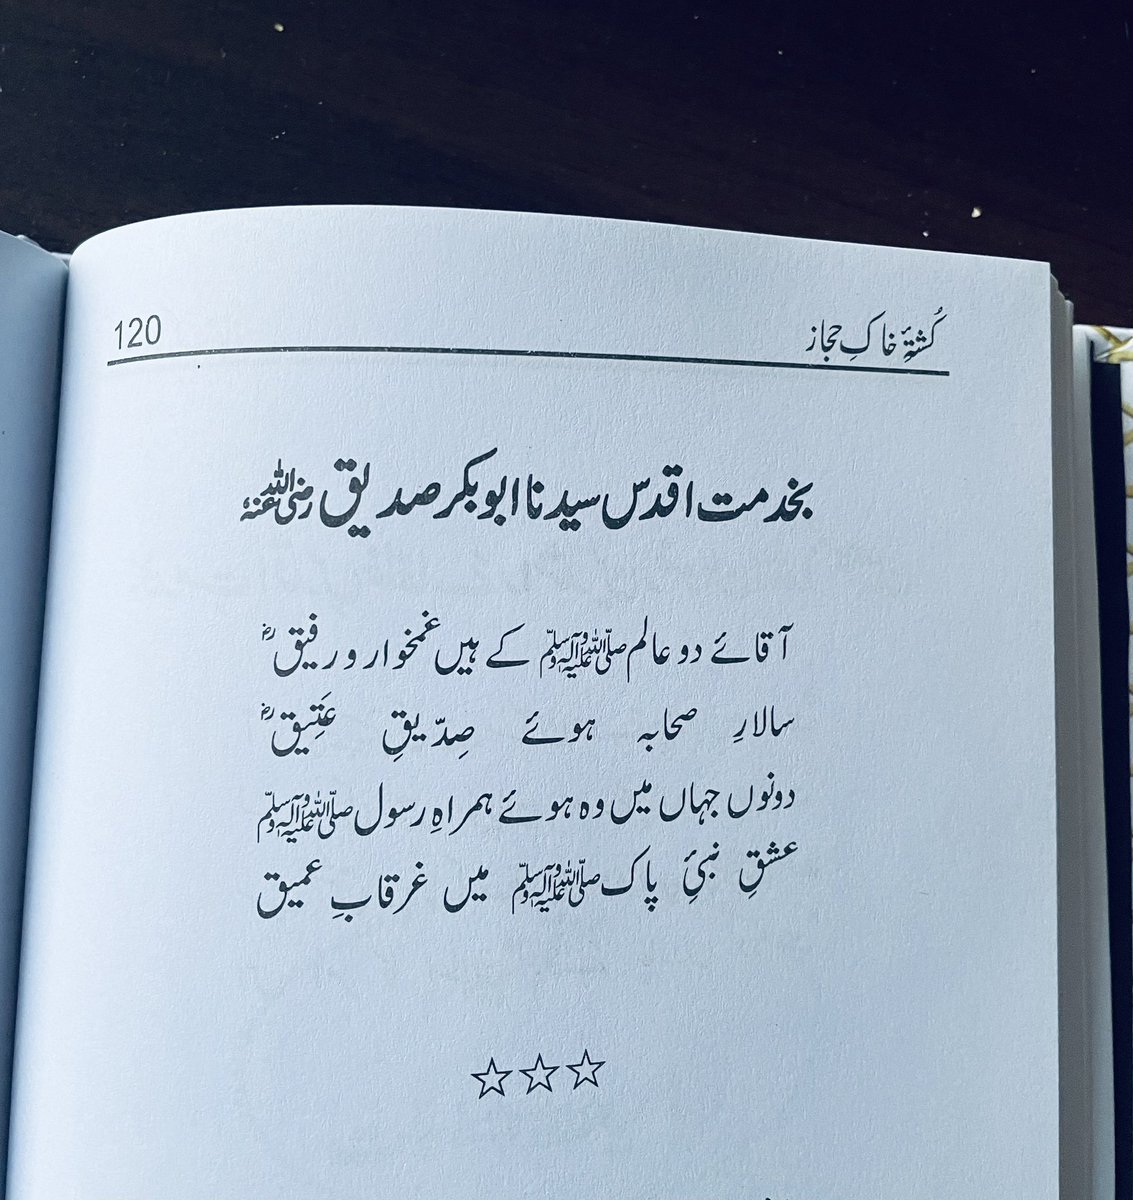 کُشتۂِ خاکِ حجاز
120
بخدمت اقدس سیدنا ابوبکر صدیق رضی اللہ عنہ
آقائے دو عالم ﷺ کے ہیں غمخوار و رفیقؓ
سالارِ صحابہ ہوئے صِدّیقِ عَتِیقؓ
دونوں جہاں میں وہ ہوئے ہمراہِ رسول ﷺ
عشقِ نبیِٔ پاک ﷺ میں غرقابِ عمیق
☆☆☆